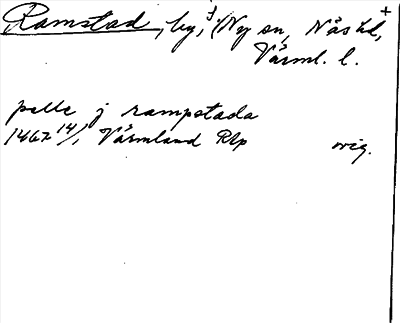 Ramstad, by, i Ny sn, Näs hd, +
Värml. l.
pelle j rampstada
1467 14/1 Värmland Rlp orig.